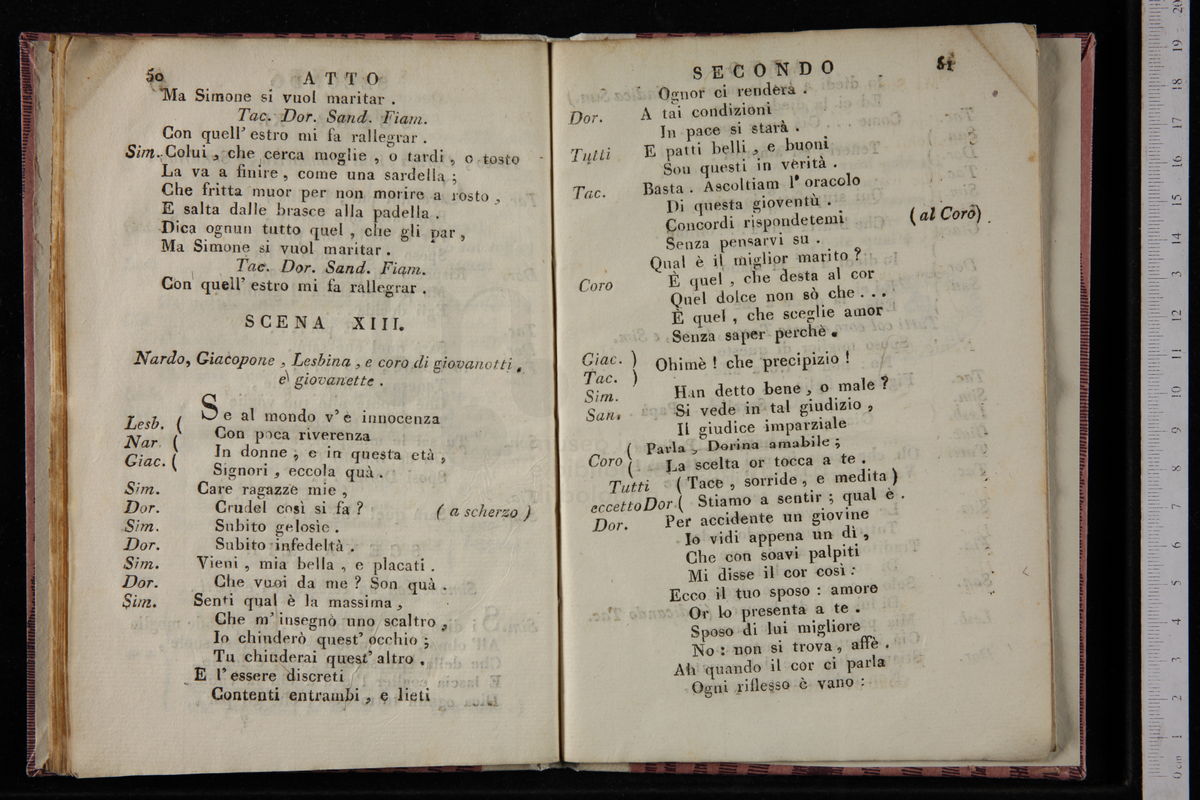 50 ATTO
Ma Simone si vuol maritar .
Tac. Dor. Sand. Fiam.
Con quell' estro mi fa rallegrar .
Sim. Colui , che cerca moglie , o tardi , o tosto
La va a finire , come una sardella ;
Che fritta muor per non morire a rosto ,
E salta dalle brasce alla padella .
Dica ognun tutto quel , che gli par ,
Ma Simone si vuol maritar .
Tac. Dor. Sand. Fiam.
Con quell' estro mi fa rallegrar .
SCENA XIII.
Nardo, Giacopone , Lesbina , e coro di giovanotti ,
e giovanette .
Lesb. ( Se al mondo v' è innocenza
Nar. ( Con poca riverenza
Giac. ( In donne , e in questa età ,
Signori , eccola quà .
Sim. Care ragazze mie ,
Dor. Crudel così si fa ? ( a scherzo )
Sim. Subito gelosìe .
Dor. Subito infedeltà .
Sim. Vieni , mia bella , e placati .
Dor. Che vuoi da me ? Son quà .
Sim. Senti qual è la massima ,
Che m' insegnò uno scaltro ,
Io chiuderò quest' occhio ;
Tu chiuderai quest' altro .
E l' essere discreti
Contenti entrambi , e lieti
SECONDO 51
Ognor ci renderà .
Dor. A tai condizioni
In pace si starà .
Tutti E patti belli , e buoni
Son questi in verità .
Tac. Basta . Ascoltiam l' oracolo
Di questa gioventù .
Concordi rispondetemi (al Coro) .
Senza pensarvi su .
Qual è il miglior marito ?
Coro È quel , che desta al cor
Quel dolce non sò che . . .
È quel , che sceglie amor
Senza saper perchè .
Giac. ) Ohimè ! che precipizio !
Tac. )
Sim. Han detto bene , o male ?
San. Si vede in tal giudizio ,
Il giudice imparziale
Coro ( Parla , Dorina amabile ;
( La scelta or tocca a te .
Tutti ( Tace , sorride , e medita )
eccetto Dor. ( Stiamo a sentir ; qual è .
Dor. Per accidente un giovine
Io vidi appena un dì ,
Che con soavi palpiti
Mi disse il cor così :
Ecco il tuo sposo : amore
Or lo presenta a te .
Sposo di lui migliore
No : non si trova , affè .
Ah quando il cor ci parla
Ogni riflesso è vano :
0 cm 1 2 3 4 5 6 7 8 9 10 11 12 13 14 15 16 17 18 19 20